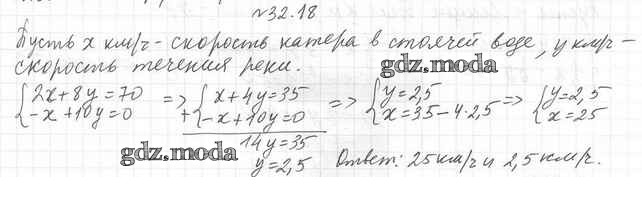 №32.18
Пусть x км/ч - скорость катера в стоячей воде, y км/ч -
скорость течения реки.
gdz.moda
{2x+8y=70 => {x+4y=35 => {y=2,5 => {y=2,5
{-x+10y=0 +{-x+10y=0 {x=35-4·2,5 {x=25
14y=35
gdz.moda
y=2,5 Ответ: 25км/ч и 2,5 км/ч.